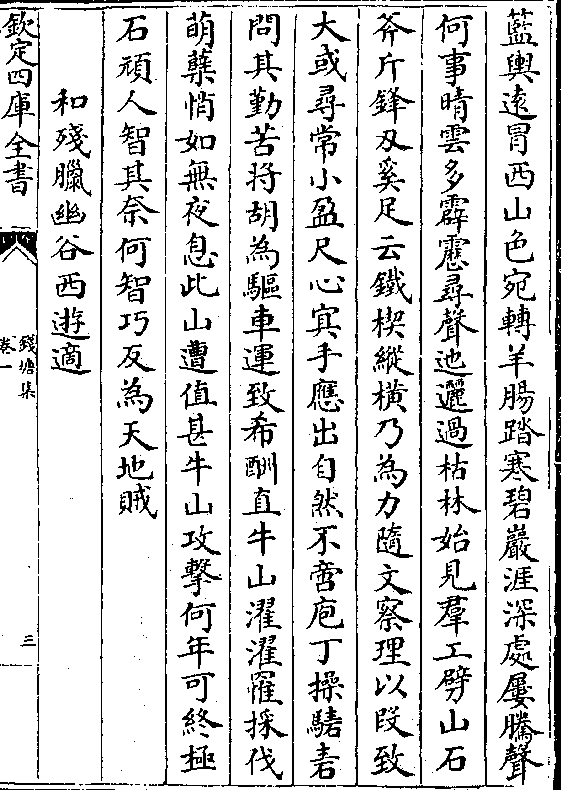 藍輿遠冒西山色宛轉羊腸踏寒碧巖涯深處屢騰聲
何事晴雲多霹靂尋聲迆邐過枯林始見羣工劈山石
斧斤鋒刄奚足云鐵楔縱橫乃為力隨文察理以叚致
大或尋常小盈尺心㝠手應出自然不啻庖丁操騞砉
問其勤苦將胡為驅車運致希酬直牛山濯濯罹採伐
萌蘖悄如無夜息此山遭值甚牛山攻擊何年可終極
石頑人智其奈何智巧反為天地賊
和殘臘幽谷西遊適
欽定四庫全書
錢塘集
卷一
三